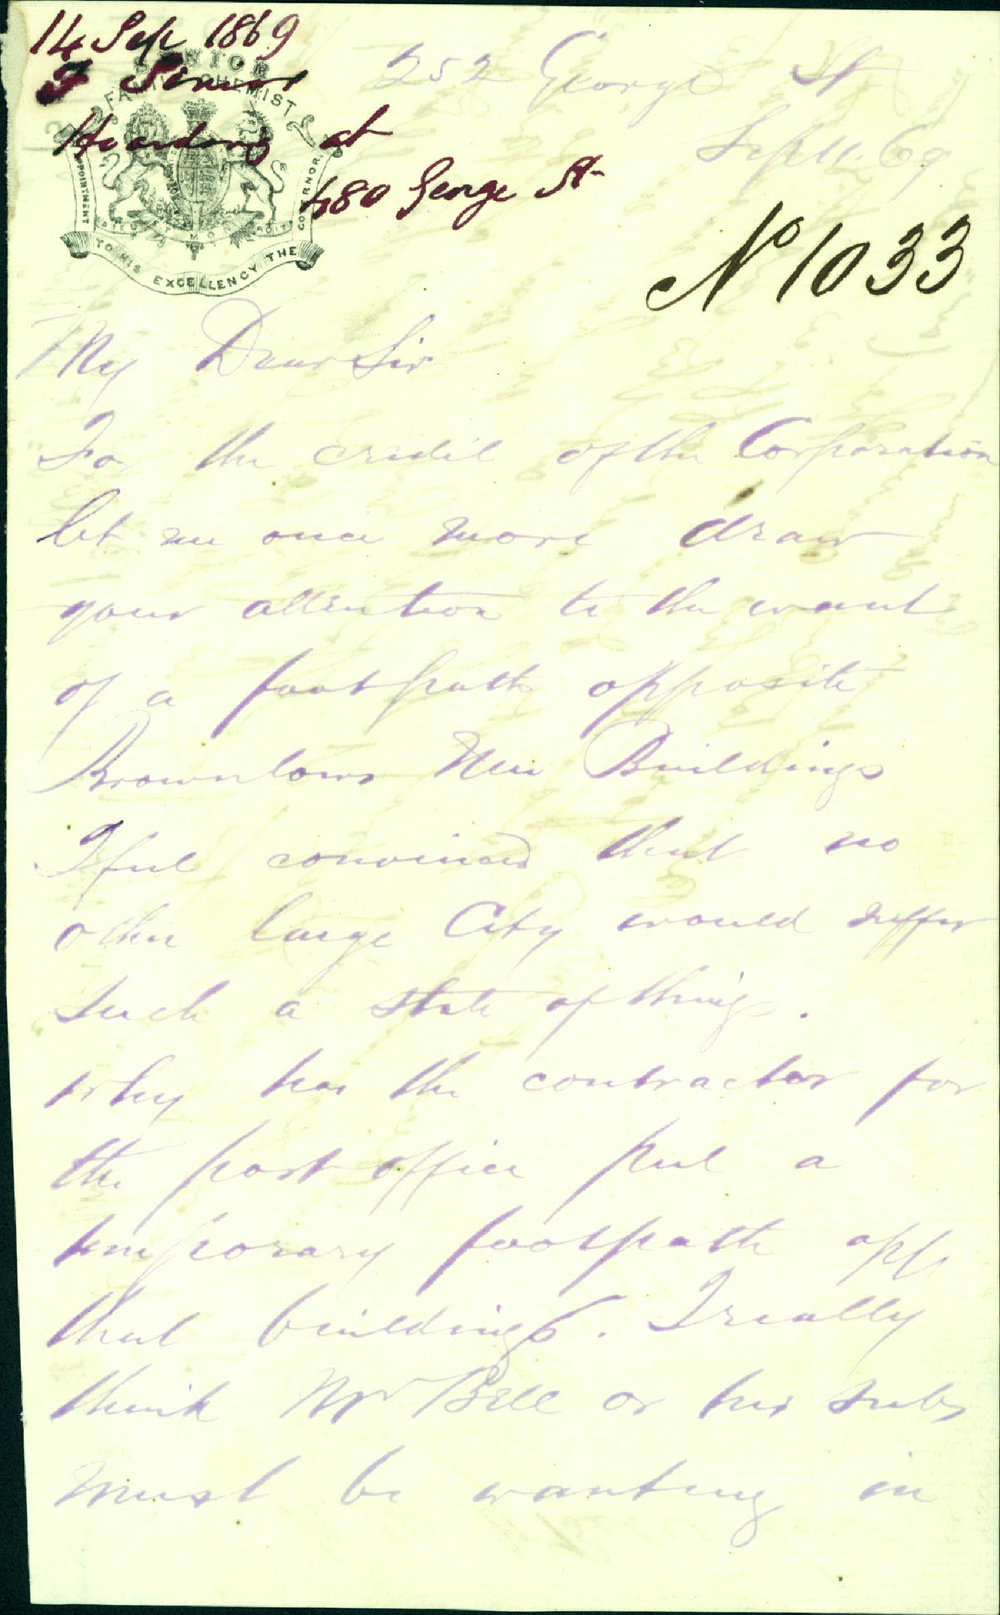 14 Sep 1869
F Senior
Hoarding at
480 George St
SENIOR
FAMILY CHEMIST
APPOINTMENT
TO HIS EXCELLENCY THE
GOVERNOR
252 George St
Sep 11. 69
No 1033
My Dear Sir
For the credit of the Corporation
let me once more draw
your attention to the want
of a footpath opposite
Brownlows New Buildings
I feel convinced that no
other large City would suffer
such a state of things.
Why has the contractor for
the post office put a
temporary footpath opp
that buildings. I really
think Mr Bell or his subs
must be wanting in